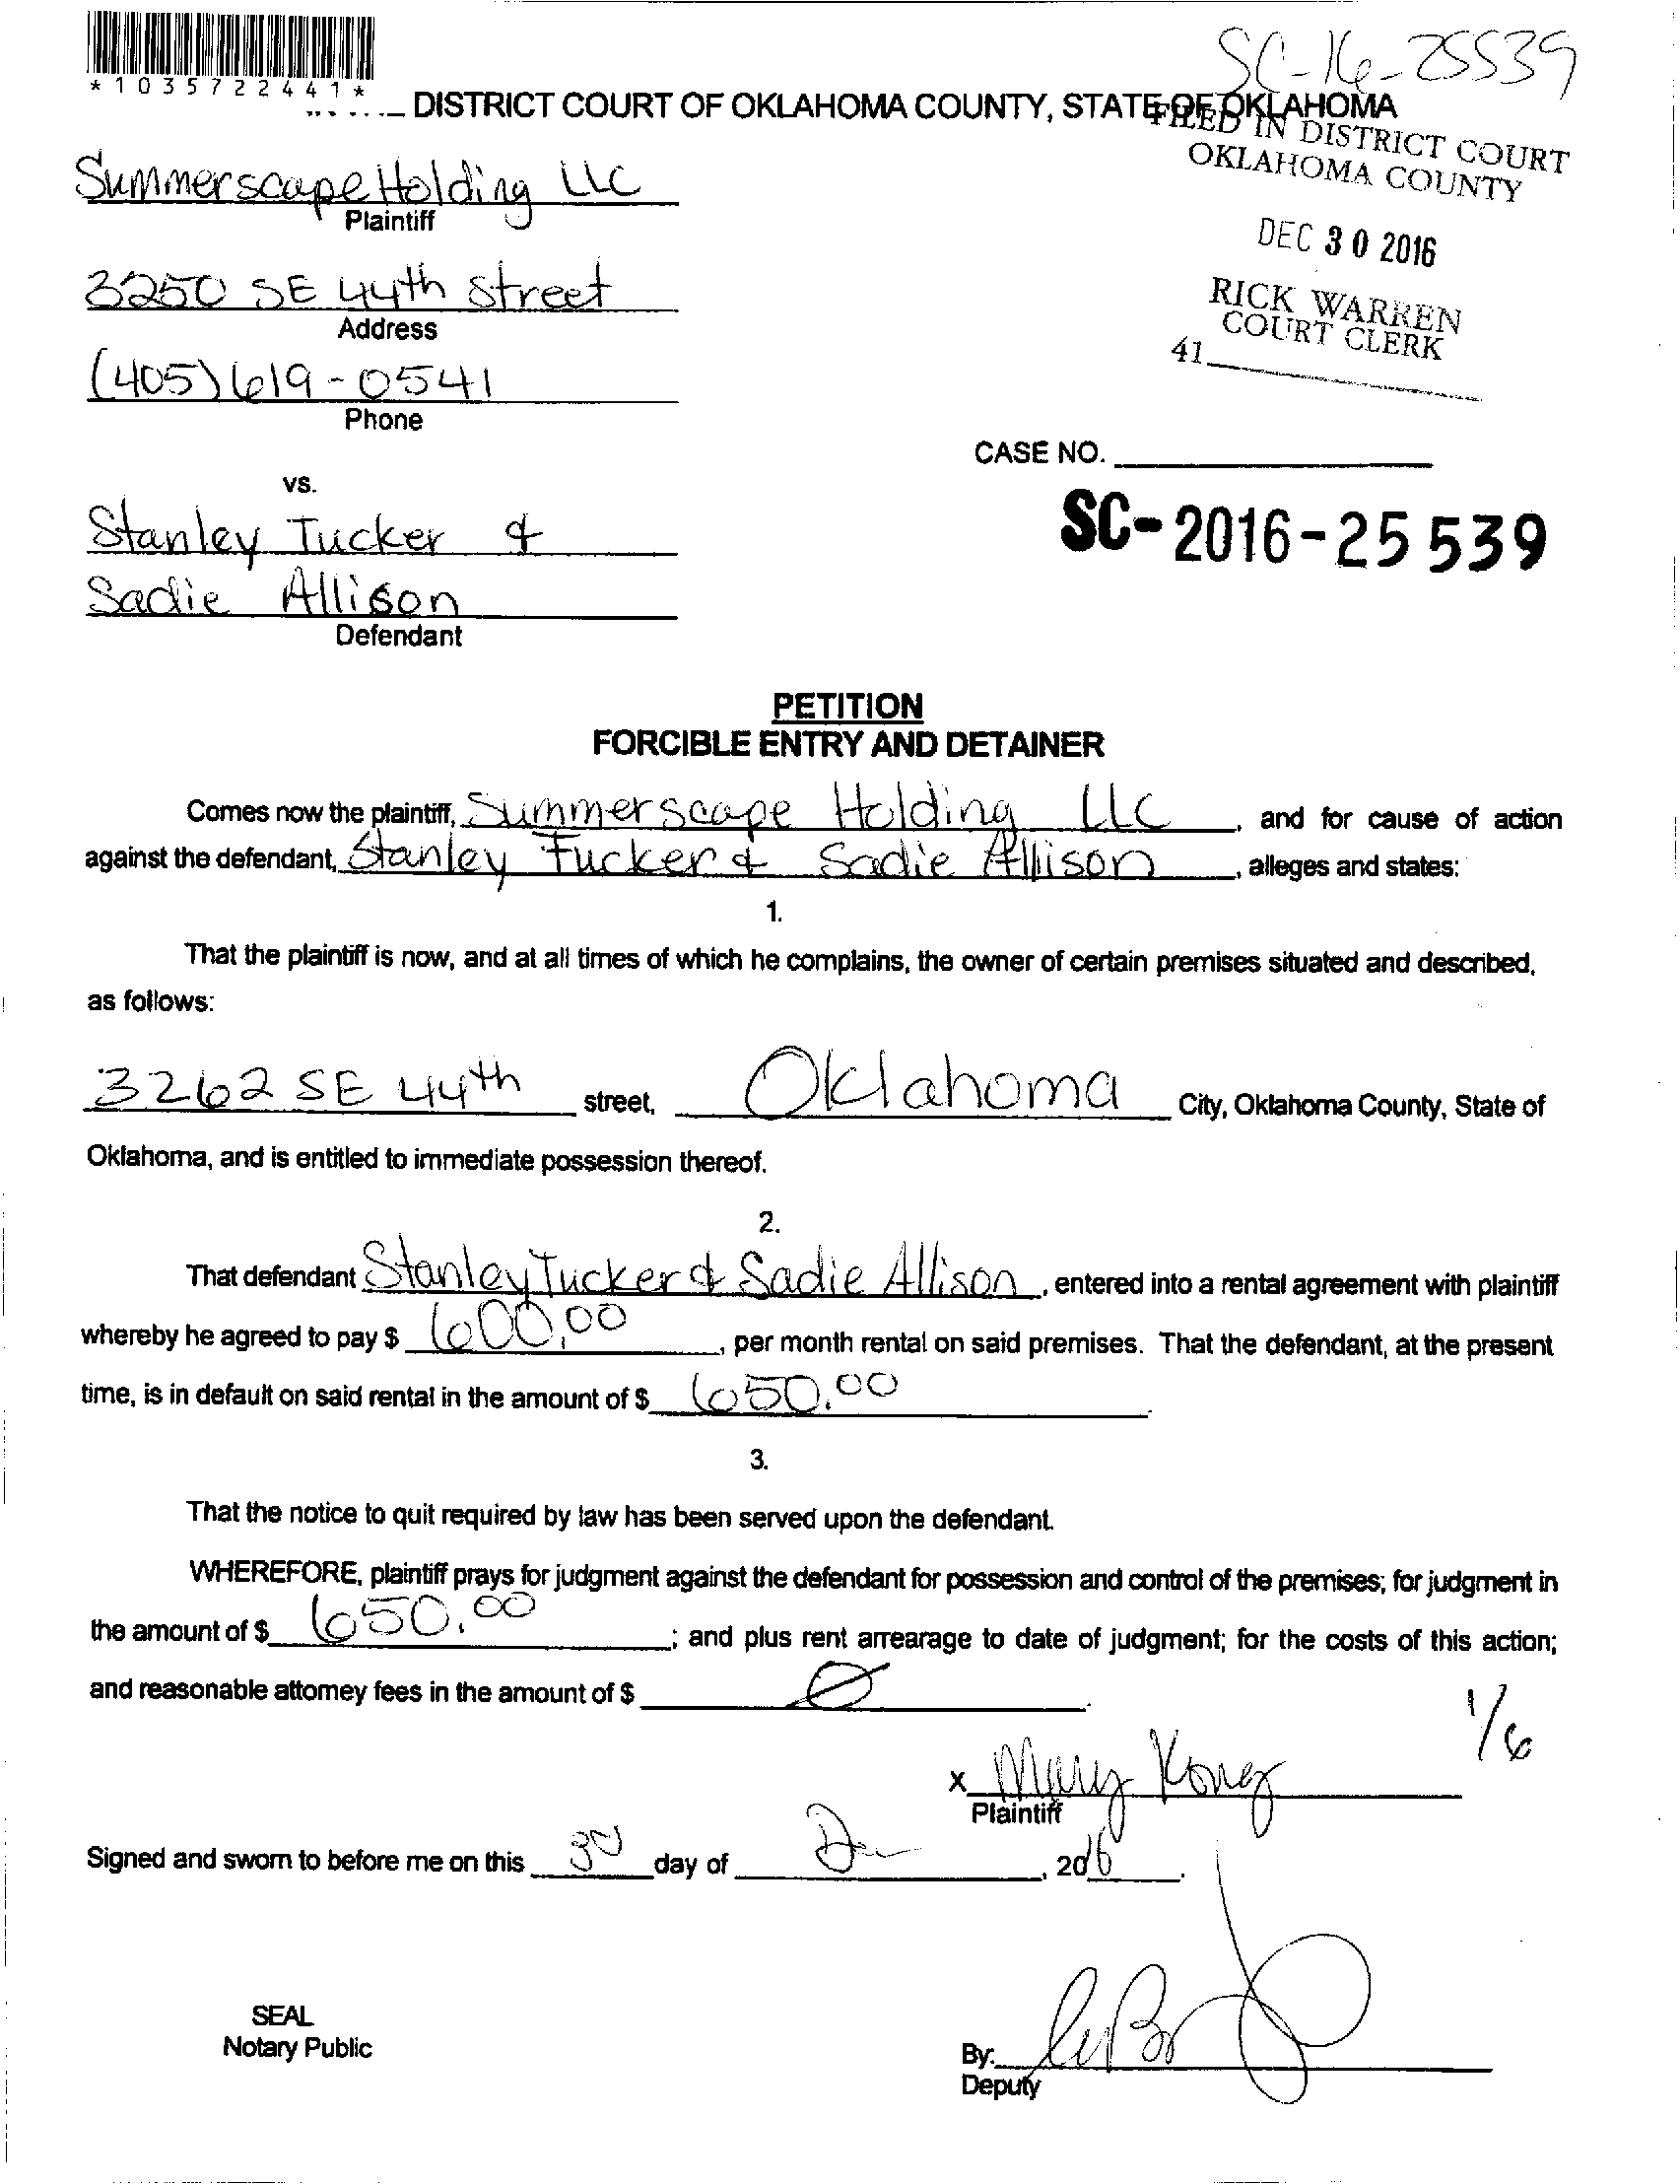 SC-16-25539
*1035722441*
DISTRICT COURT OF OKLAHOMA COUNTY, STATE OF OKLAHOMA
FILED IN DISTRICT COURT
OKLAHOMA COUNTY
DEC 30 2016
RICK WARREN
COURT CLERK
41
Summerscape Holding LLC
Plaintiff
3250 SE 44th Street
Address
(405) 619-0541
Phone
CASE NO.
SC-2016-25539
vs.
Stanley Tucker &
Sadie Allison
Defendant
PETITION
FORCIBLE ENTRY AND DETAINER
Comes now the plaintiff, Summerscape Holding LLC, and for cause of action
against the defendant, Stanley Tucker & Sadie Allison, alleges and states:
1.
That the plaintiff is now, and at all times of which he complains, the owner of certain premises situated and described,
as follows:
3262 SE 44th street, Oklahoma City, Oklahoma County, State of
Oklahoma, and is entitled to immediate possession thereof.
2.
That defendant Stanley Tucker & Sadie Allison, entered into a rental agreement with plaintiff
whereby he agreed to pay $ 600.00, per month rental on said premises. That the defendant, at the present
time, is in default on said rental in the amount of $ 650.00.
3.
That the notice to quit required by law has been served upon the defendant.
WHEREFORE, plaintiff prays for judgment against the defendant for possession and control of the premises; for judgment in
the amount of $ 650.00; and plus rent arrearage to date of judgment; for the costs of this action;
and reasonable attorney fees in the amount of $ Ø.
1/6
X Mary Kong
Plaintiff
Signed and sworn to before me on this 30 day of De, 2016.
SEAL
Notary Public
By:
Deputy